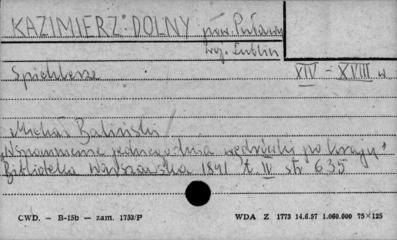 KAZIMIERZ DOLNY pow. Puławy
woj. Lublin
Spichlerze XIV - XVIII w
Michał Baliński /
"Wspomnienie jednego dnia wędrówki po kraju"
Biblioteka Warszawska 1841 t. IV str 635
CWD. — B-15b — zam. 1753/P WDA Z 1773 14.6.57 1.060.000 75×125